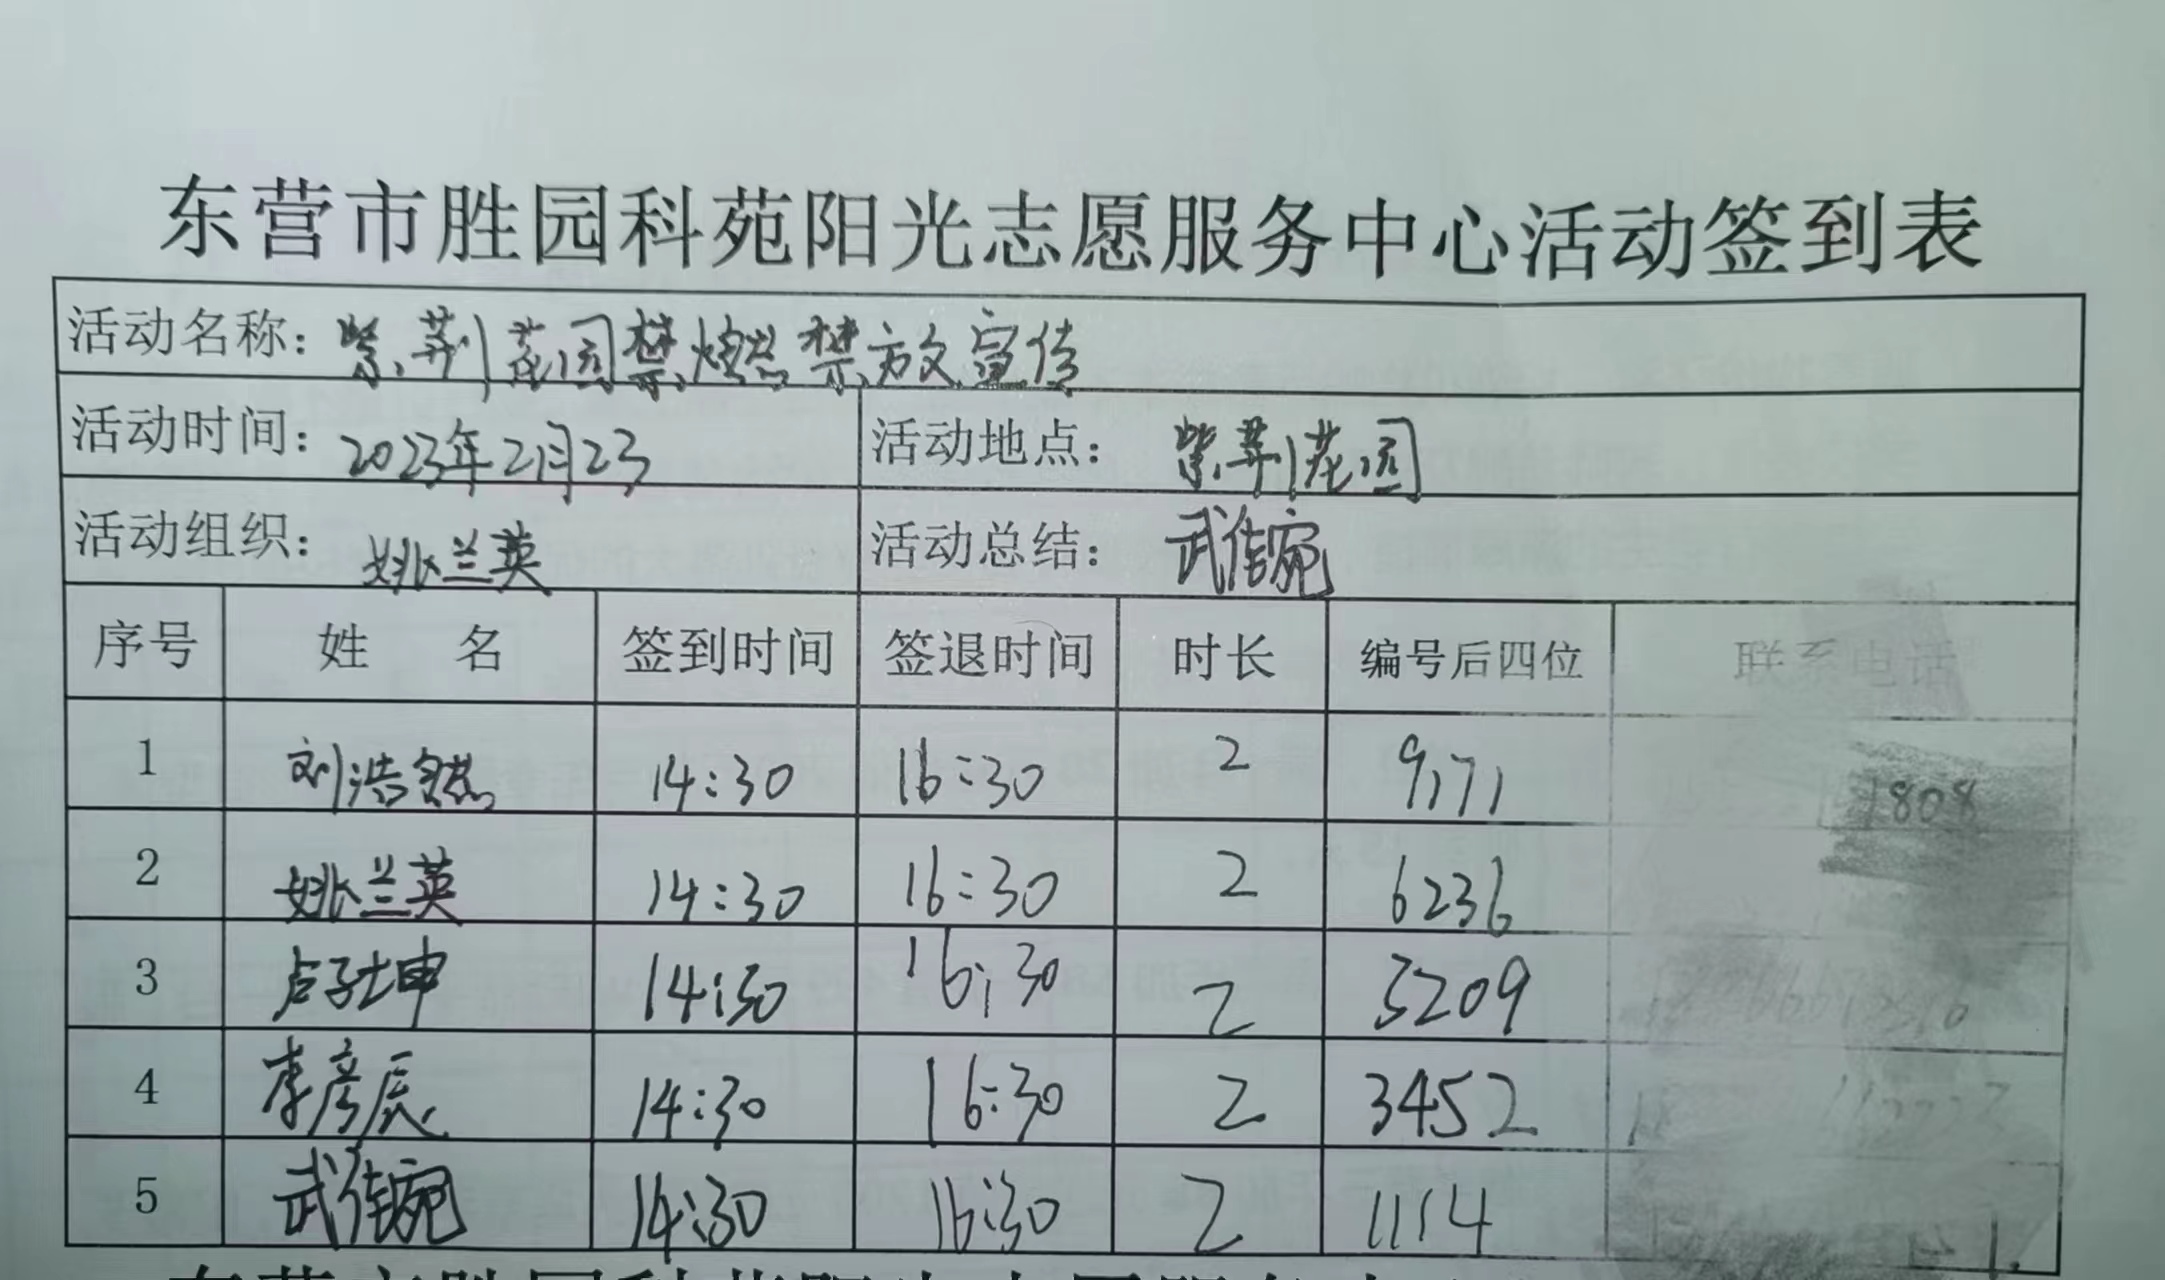 东营市胜园科苑阳光志愿服务中心活动签到表
活动名称：紫荆花园禁燃禁放宣传
活动时间：2023年2月23 活动地点：紫荆花园
活动组织：姚兰英 活动总结：武佳宛
序号 姓名 签到时间 签退时间 时长 编号后四位 联系电话
1 刘浩然 14:30 16:30 2 9171
2 姚兰英 14:30 16:30 2 6236
3 卢子坤 14:30 16:30 2 5209
4 李彦辰 14:30 16:30 2 3452
5 武佳宛 14:30 16:30 2 1114